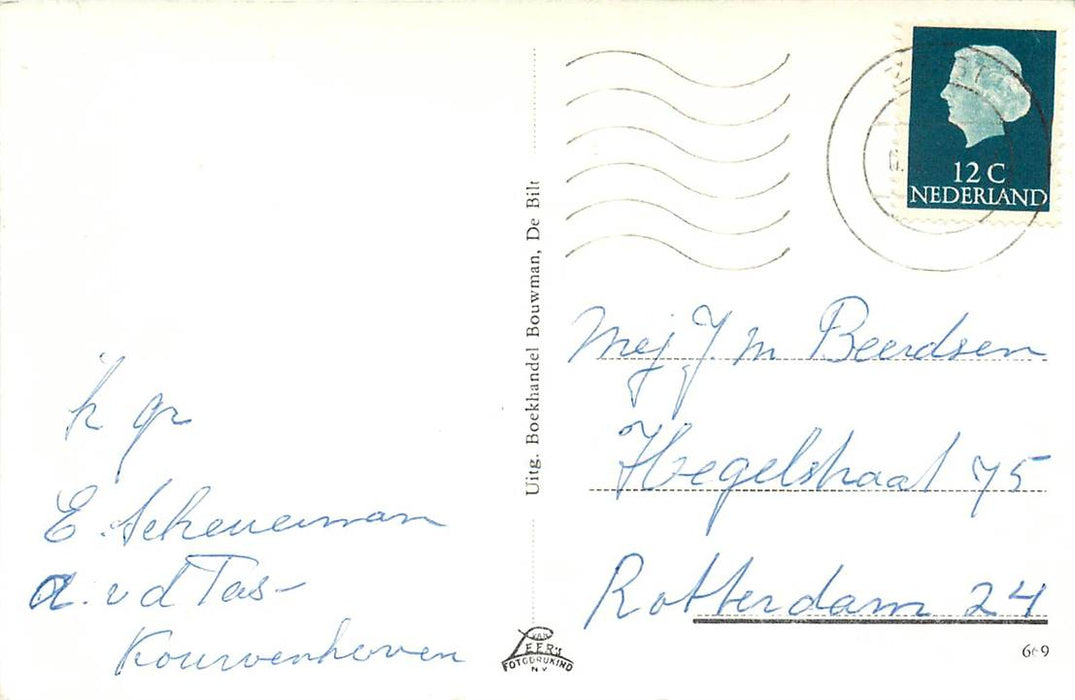 h gr
E. Scheuerman
a. v d Tas-
Kouwenhoven
Uitg. Boekhandel Bouwman, De Bilt
VAN
LEER'S
FOTODRUKIND
N V
12 C
NEDERLAND
Mej J. M Beerdsen
Hegelstraat 75
Rotterdam 24